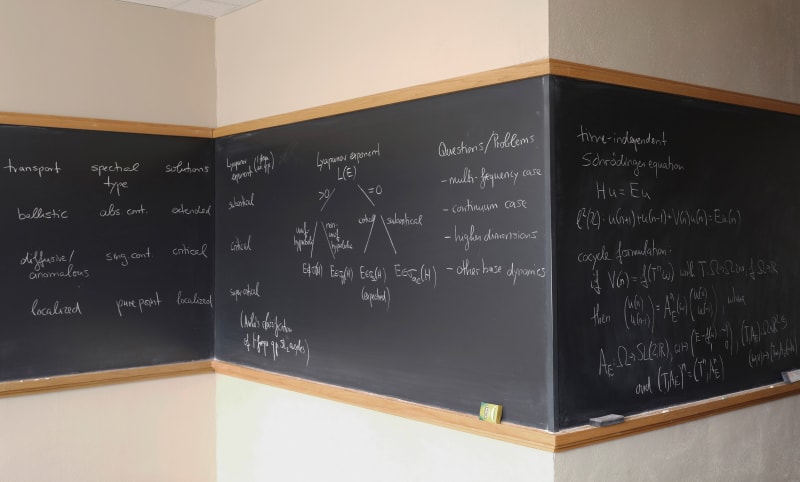 transport spectral type solutions
ballistic abs. cont. extended
diffusive/anomalous sing. cont. critical
localized pure point localized
Lyapunov exponent (1-freq. qp)
subcritical
critical
supercritical
(Avila's classification
of 1-frequ qp SL₂ cocycles)
Lyapunov exponent
L(E)
>0 =0
unif. hyperbolic non-unif. hyperbolic critical subcritical
E∉σ(H) E∈σ_pp(H) E∈σ_sc(H) E∈σ_ac(H)
(expected)
Questions/Problems
- multi-frequency case
- continuum case
- higher dimensions
- other base dynamics
time-independent
Schrödinger equation
Hu = Eu
ℓ²(ℤ): u(n+1)+u(n-1)+V(n)u(n)=Eu(n)
cocycle formulation:
if V(n) = f(Tⁿω) with T:Ω→Ω inv., f:Ω→ℝ
then (u(n) u(n-1)) = A_E^n(ω) (u(0) u(-1)), where
A_E: Ω→SL(2,ℝ), ω↦(E-f(ω) -1 1 0), (T,A_E):Ω×ℝ²↺
and (T,A_E)ⁿ=(Tⁿ,A_E^n)